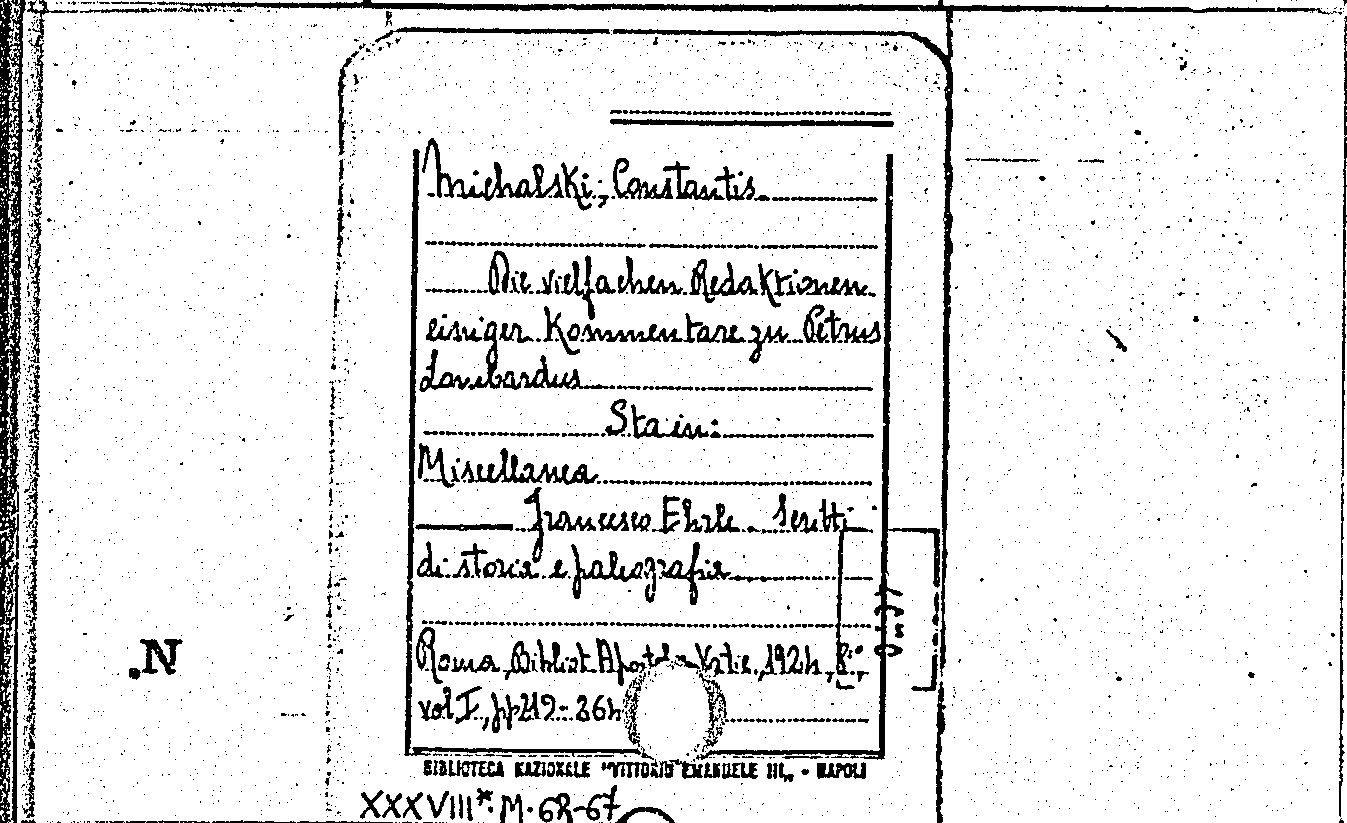 Michalski, Constantis
Die vielfachen Redaktionen
einiger Kommentare zu Petrus
Lombardus
Sta in:
Miscellanea
Francesco Ehrle. Scritti
di storia e paleografia
Roma, Bibliot. Apostol. Vatic., 1924, 8°,
vol I, pp 219-264
BIBLIOTECA NAZIONALE "VITTORIO EMANUELE III" - NAPOLI
XXXVIII*. M. 62-67
N.